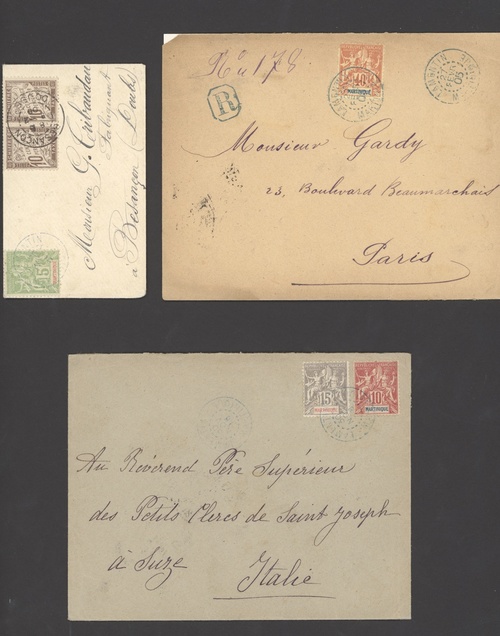 Monsieur G.
à Besançon (Doubs)
10
10
BESANÇON
5
R
No 178
40
MARTINIQUE
Monsieur Gardy
23, Boulevard Beaumarchais
Paris
15
MARTINIQUE
10
MARTINIQUE
Au Révérend Père Supérieur
des Petits Clercs de Saint Joseph
à Suze
Italie